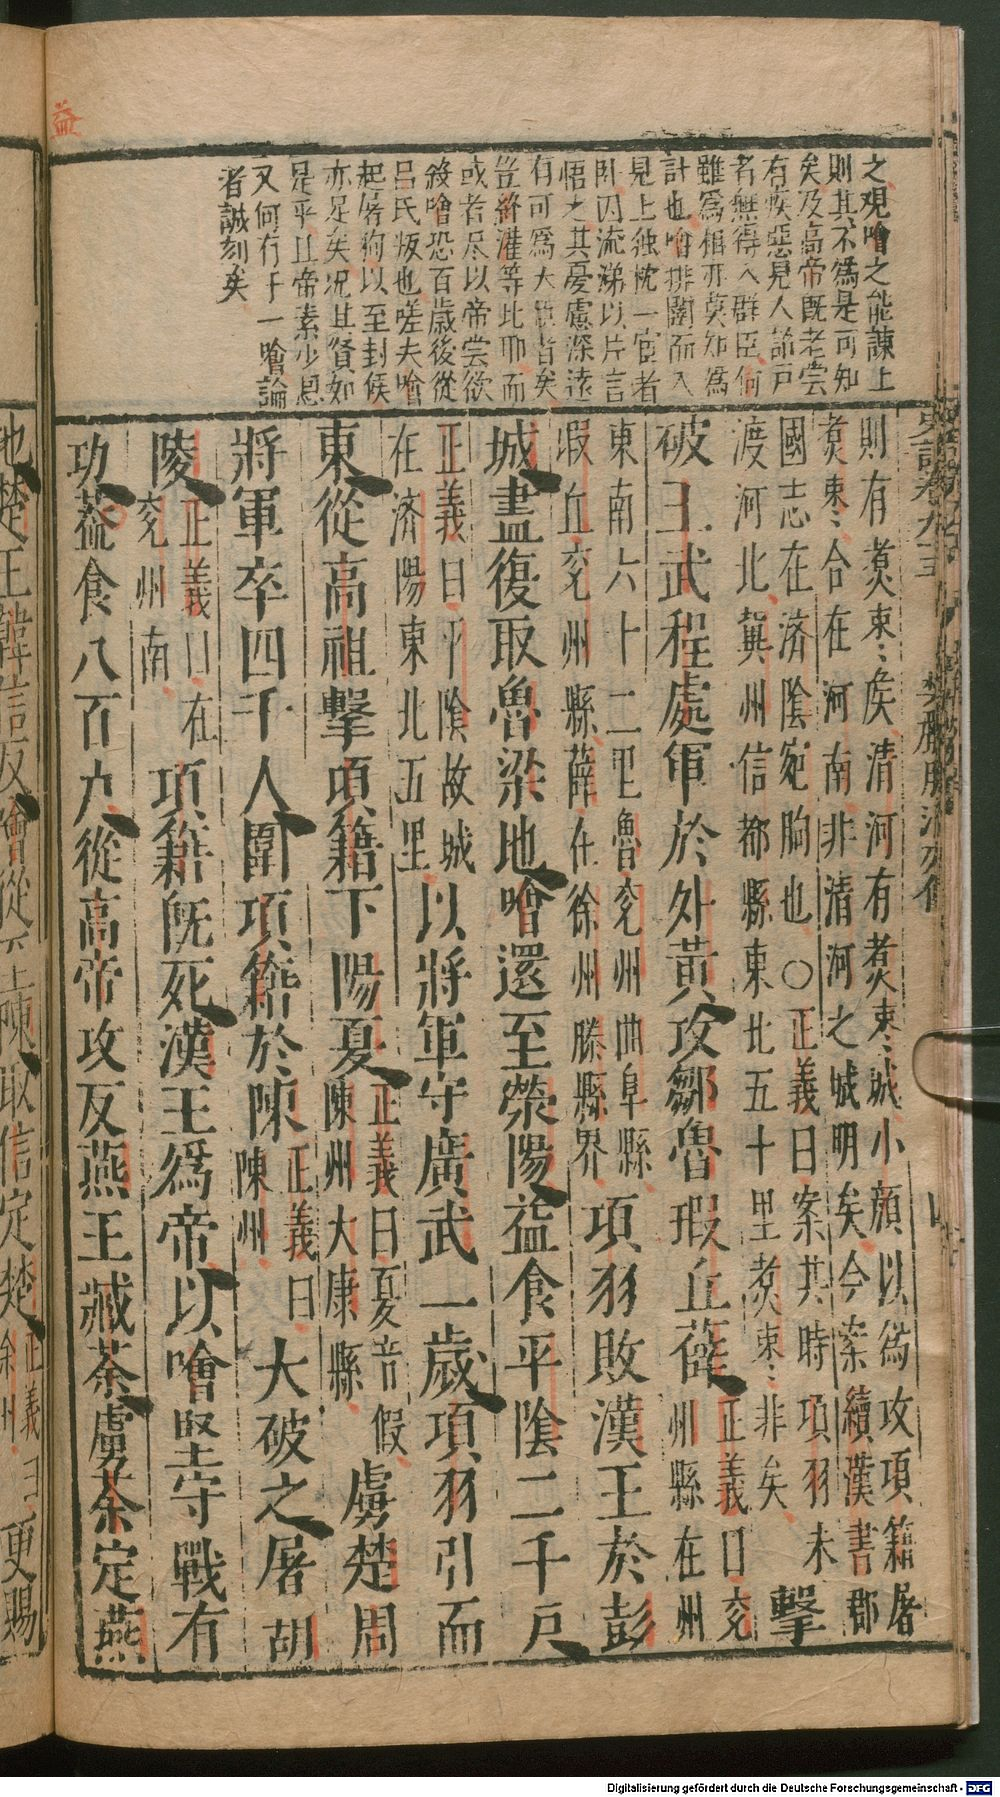 之观噲之能諫上
則其不爲是可知
矣及高帝既老嘗
有疾惡見人詔戸
者無得入群臣何
雖爲相亦莫知爲
計也噲排闥而入
見上獨枕一宦者
卧因流涕以片言
悟之其憂慮深遠
有可爲大臣者矣
豈絳灌等比耶而
或者尽以帝嘗欲
殺噲恐百歳後從
吕氏叛也嗟夫噲
起屠狗以至封侯
亦足矣况其賢如
是乎且帝素少恩
又何有于一噲論
者誠刻矣
則有煑棗侯清河有煑棗城小顔以爲攻項籍屠
煑棗合在河南非清河之城明矣今案續漢書郡
國志在濟陰宛朐也○正義曰案其時項羽未
渡河北冀州信都縣東北五十里煑棗非矣
擊
破王武程處軍於外黃攻鄒魯瑕丘薛
正義曰兖
州縣在州
東南六十二里魯兖州曲阜縣
瑕丘兖州縣薛在徐州滕縣界
項羽敗漢王於彭
城盡復取魯梁地噲還至滎陽益食平陰二千戸
正義曰平陰故城
在濟陽東北五里
以將軍守廣武一歲項羽引而
東從高祖擊項籍下陽夏
正義曰夏音假
陳州大康縣
虜楚周
將軍卒四千人圍項籍於陳
正義曰
陳州
大破之屠胡
陵
正義曰在
兖州南
項籍既死漢王爲帝以噲堅守戰有
功益食八百九從高帝攻反燕王臧荼虜荼定燕
地楚王韓信反噲從至陳取信定楚
正義曰
徐州
更賜
益
Digitalisierung gefördert durch die Deutsche Forschungsgemeinschaft - DFG